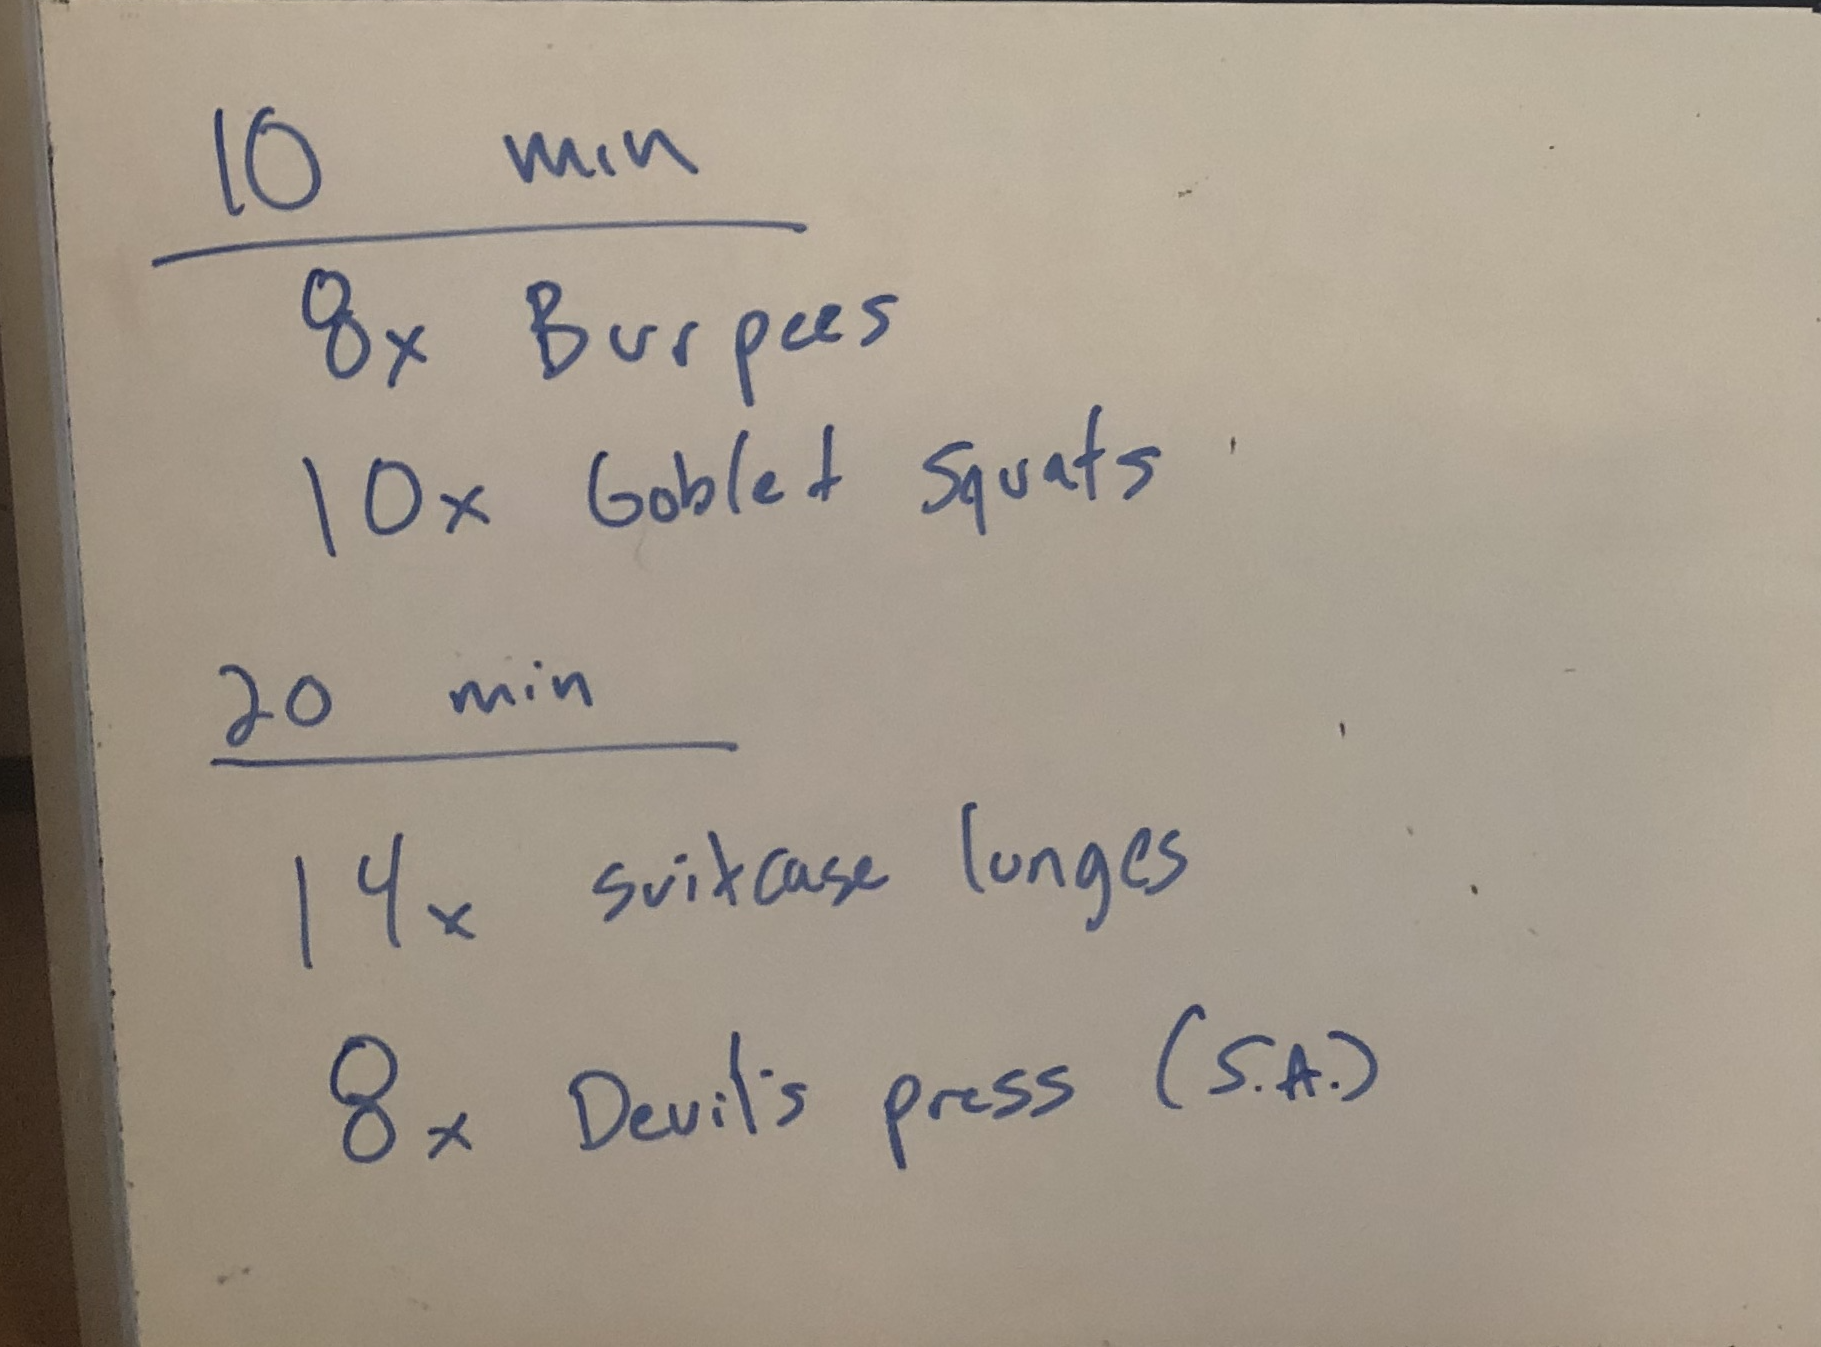 10 min
8x Burpees
10x Goblet Squats
20 min
14x suitcase lunges
8x Devil's press (S.A.)